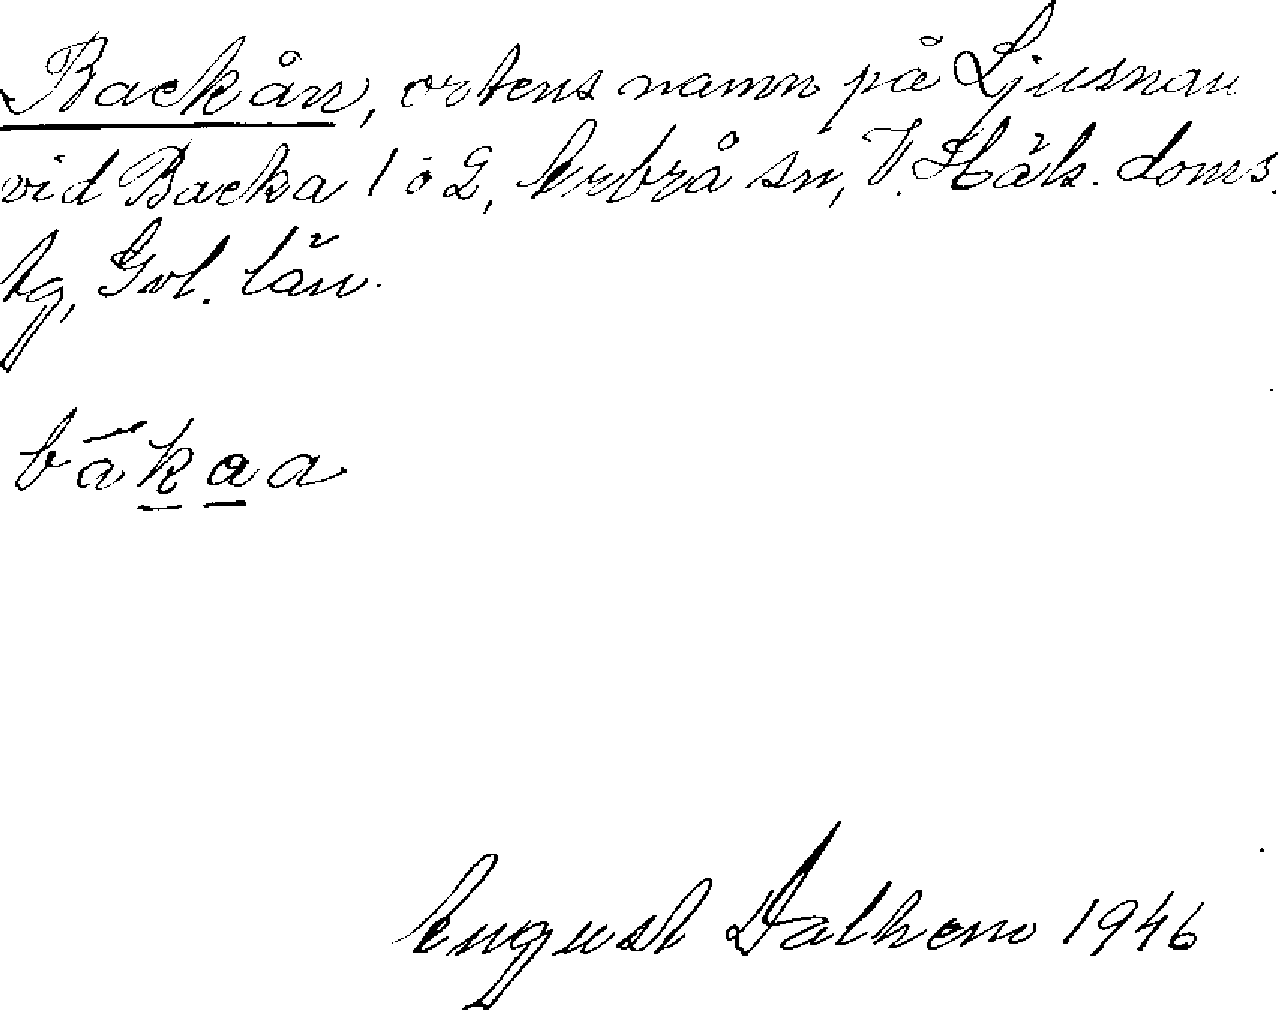 Backån, ortens namn på Ljusnan
vid Backa 1 o 2, Arbrå sn, V. Häls. doms.
tg, Gvl. län.
bákaa
August Dalhem 1946